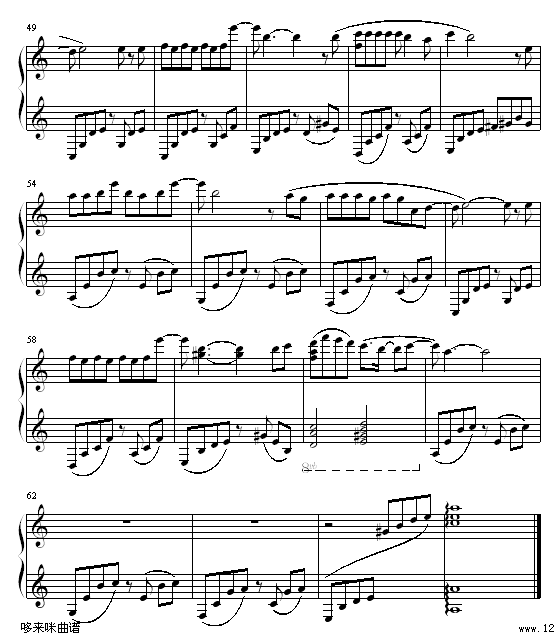 49
54
58
8vb
62
哆来咪曲谱
www. 12